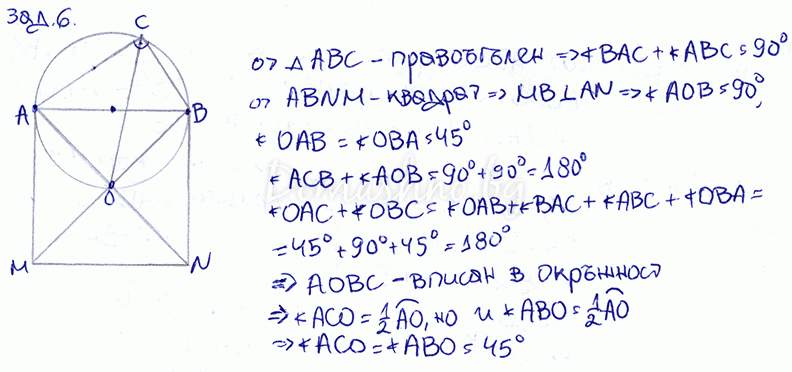 Зад.6.
C
A
B
O
M
N
от △ ABC - правоъгълен => ∢BAC + ∢ABC = 90°
от ABNM - квадрат => MB⊥AN => ∢AOB = 90°,
∢OAB = ∢OBA = 45°
∢ACB + ∢AOB = 90° + 90° = 180°
∢OAC + ∢OBC = ∢OAB + ∢BAC + ∢ABC + ∢OBA =
= 45° + 90° + 45° = 180°
=> AOBC - вписан в окръжност
=> ∢ACO = 1/2 AO, но и ∢ABO = 1/2 AO
=> ∢ACO = ∢ABO = 45°